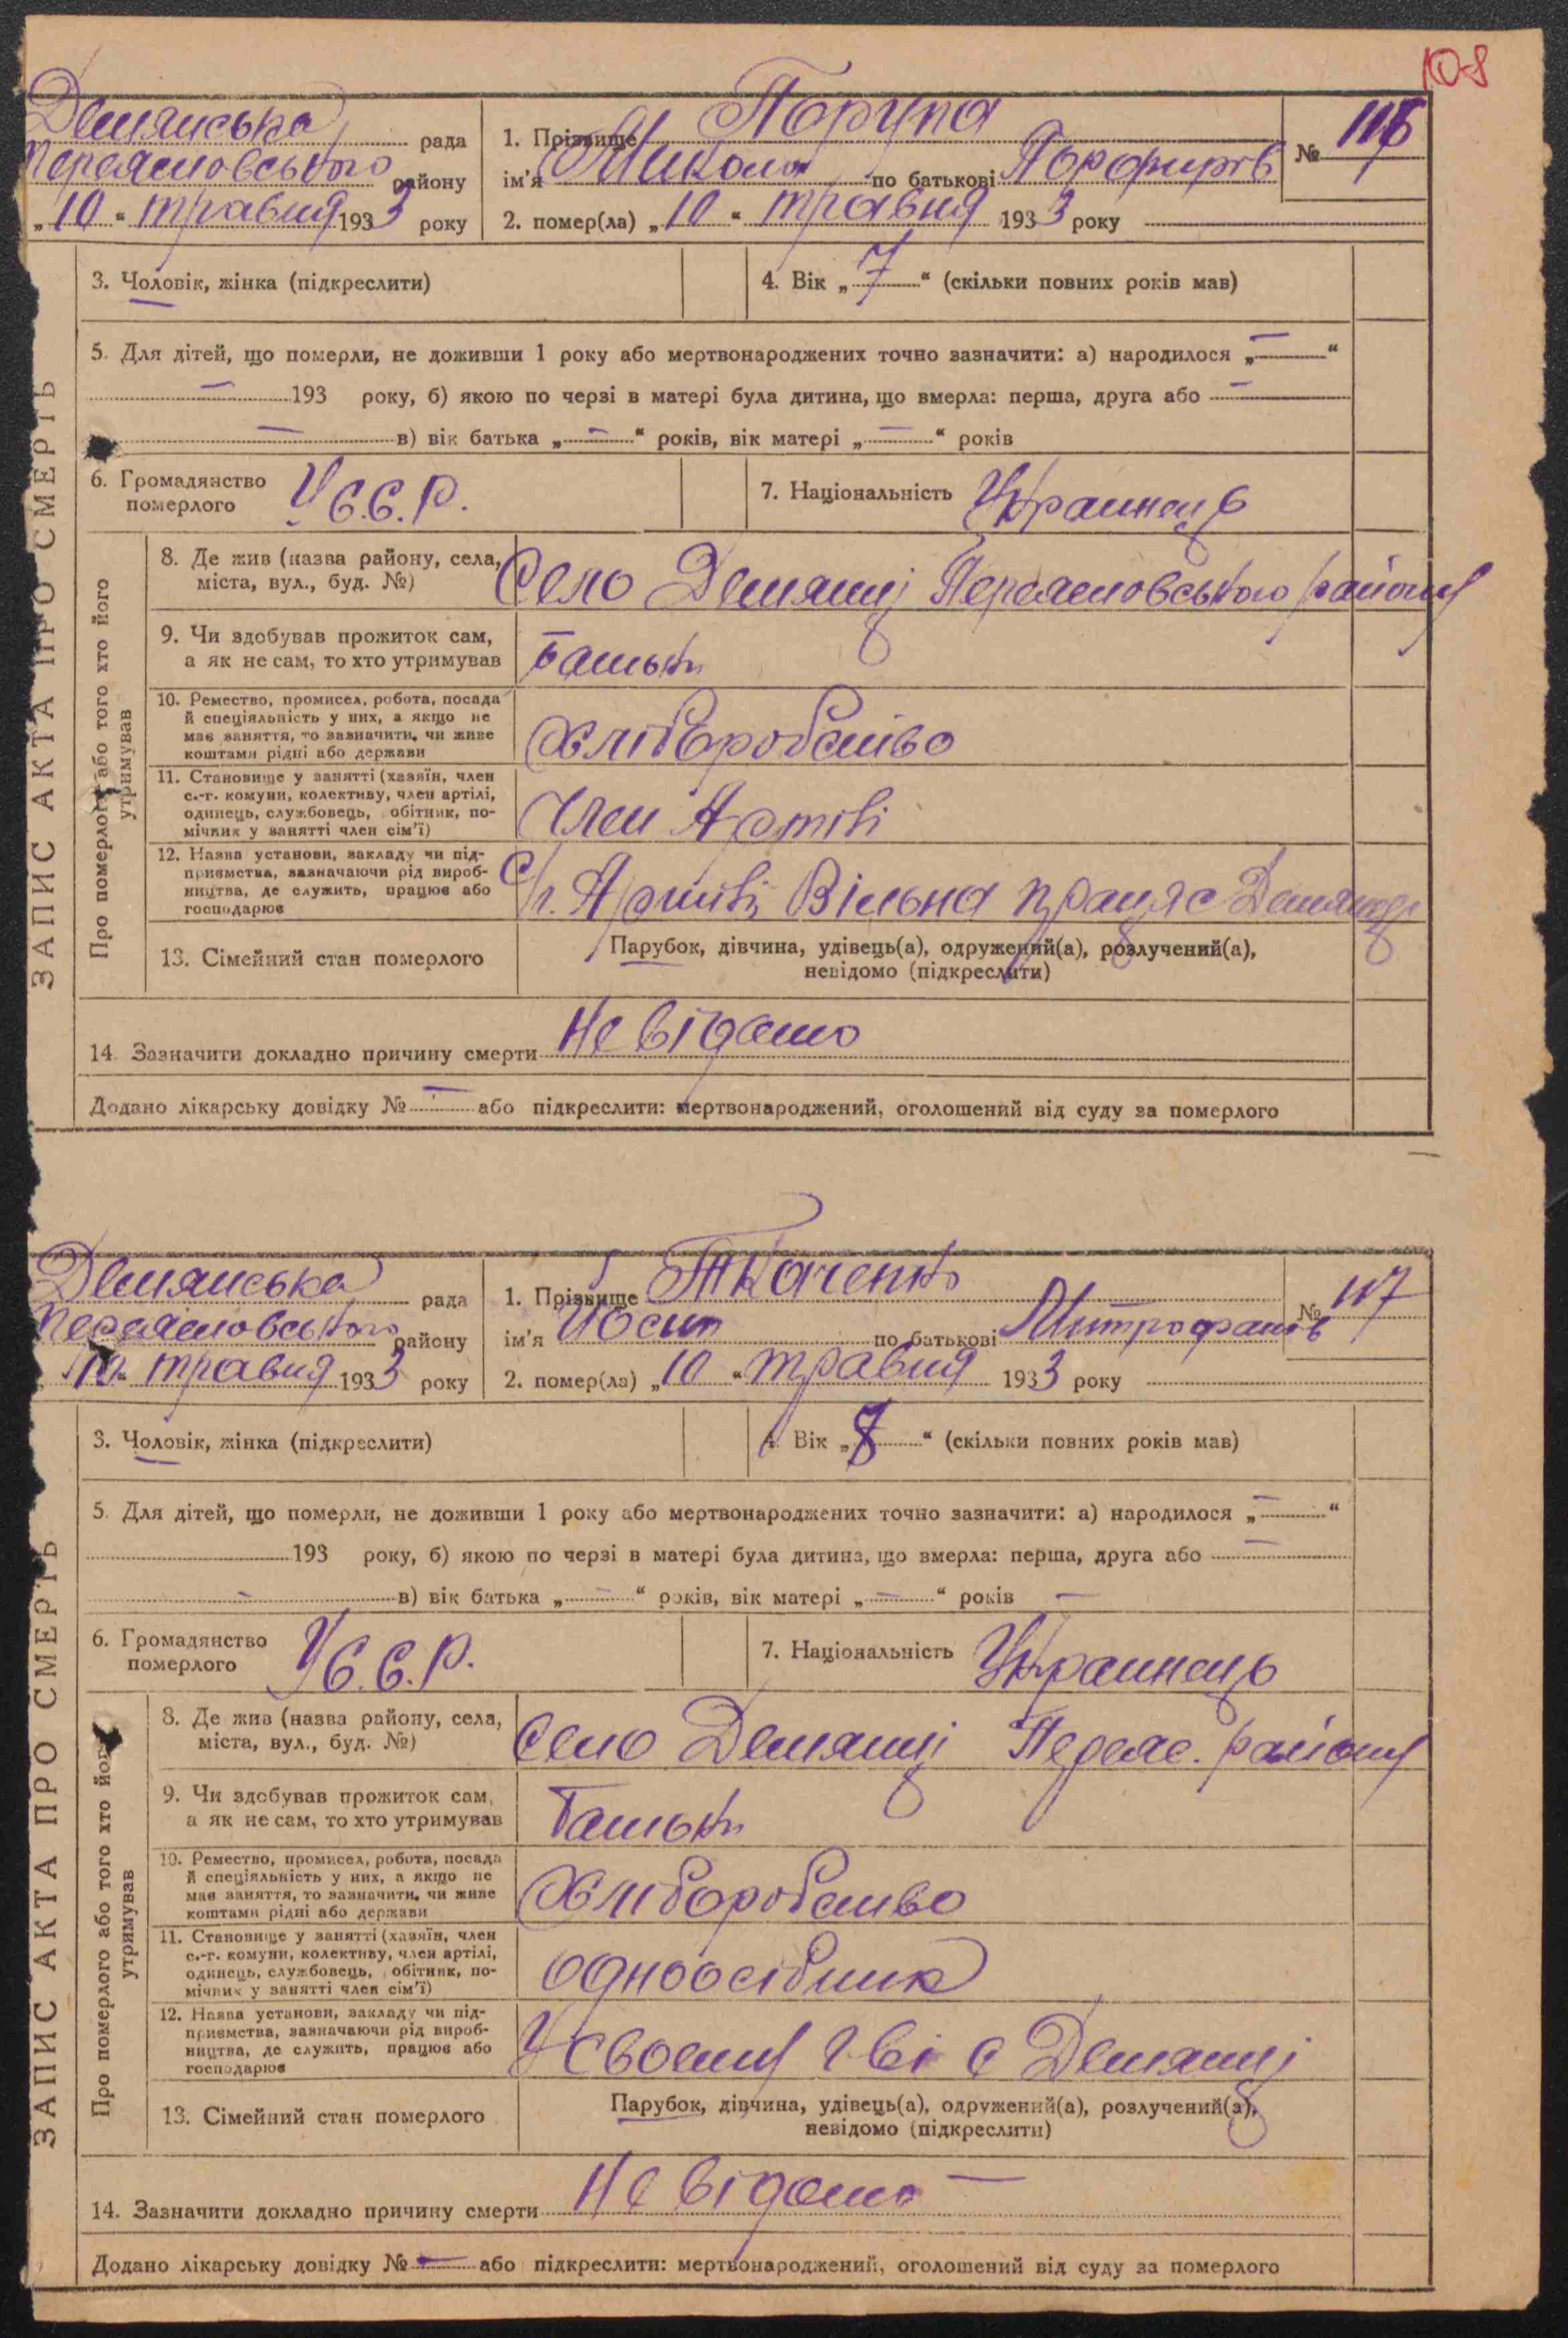 108
Демянська рада
Переясловського району
„10“ травня 1933 року
1. Прізвище Порупа
ім'я Микола по батькові Порфирів
№ 116
2. помер(ла) „10“ травня 1933 року
3. Чоловік, жінка (підкреслити)
4. Вік „7“ (скільки повних років мав)
5. Для дітей, що померли, не доживши 1 року або мертвонароджених точно зазначити: а) народилося „—“
— 193 року, б) якою по черзі в матері була дитина, що вмерла: перша, друга або —
— в) вік батька „—“ років, вік матері „—“ років
6. Громадянство
померлого
У.С.С.Р.
7. Національність Украинець
ЗАПИС АКТА ПРО СМЕРТЬ
Про померлого або того хто його
утримував
8. Де жив (назва району, села,
міста, вул., буд. №)
Село Демянці Переясловського району
9. Чи здобував прожиток сам,
а як не сам, то хто утримував
Батьки
10. Ремество, промисел, робота, посада
й спеціяльність у них, а якщо не
має заняття, то зазначити, чи живе
коштами рідні або держави
Хліборобство
11. Становище у занятті (хазяїн, член
с.-г. комуни, колективу, член артілі,
одинець, службовець, обітник, по-
мічник у занятті член сім'ї)
Член Артілі
12. Назва установи, закладу чи під-
приємства, зазначаючи рід вироб-
ництва, де служить, працює або
господарює
С/г. Артілі Вільна праця с Демянці
13. Сімейний стан померлого
Парубок, дівчина, удівець(а), одружений(а), розлучений(а),
невідомо (підкреслити)
14. Зазначити докладно причину смерти Не відомо
Додано лікарську довідку № — або підкреслити: мертвонароджений, оголошений від суду за померлого
Демянська рада
Переясловського району
„10“ травня 1933 року
1. Прізвище Ткаченко
ім'я Йосип по батькові Митрофанов
№ 117
2. помер(ла) „10“ травня 1933 року
3. Чоловік, жінка (підкреслити)
4. Вік „8“ (скільки повних років мав)
5. Для дітей, що померли, не доживши 1 року або мертвонароджених точно зазначити: а) народилося „—“
193 року, б) якою по черзі в матері була дитина, що вмерла: перша, друга або —
— в) вік батька „—“ років, вік матері „—“ років —
6. Громадянство
померлого
У.С.С.Р.
7. Національність Украинець
ЗАПИС АКТА ПРО СМЕРТЬ
Про померлого або того хто його
утримував
8. Де жив (назва району, села,
міста, вул., буд. №)
Село Демянці Переяс. району
9. Чи здобував прожиток сам,
а як не сам, то хто утримував
Батьки
10. Ремество, промисел, робота, посада
й спеціяльність у них, а якщо не
має заняття, то зазначити, чи живе
коштами рідні або держави
Хліборобство
11. Становище у занятті (хазяїн, член
с.-г. комуни, колективу, член артілі,
одинець, службовець, обітник, по-
мічник у занятті член сім'ї)
одноосібник
12. Назва установи, закладу чи під-
приємства, зазначаючи рід вироб-
ництва, де служить, працює або
господарює
У своєму г-ві с Демянці
13. Сімейний стан померлого
Парубок, дівчина, удівець(а), одружений(а), розлучений(а),
невідомо (підкреслити)
14. Зазначити докладно причину смерти Не відомо —
Додано лікарську довідку № — або підкреслити: мертвонароджений, оголошений від суду за померлого